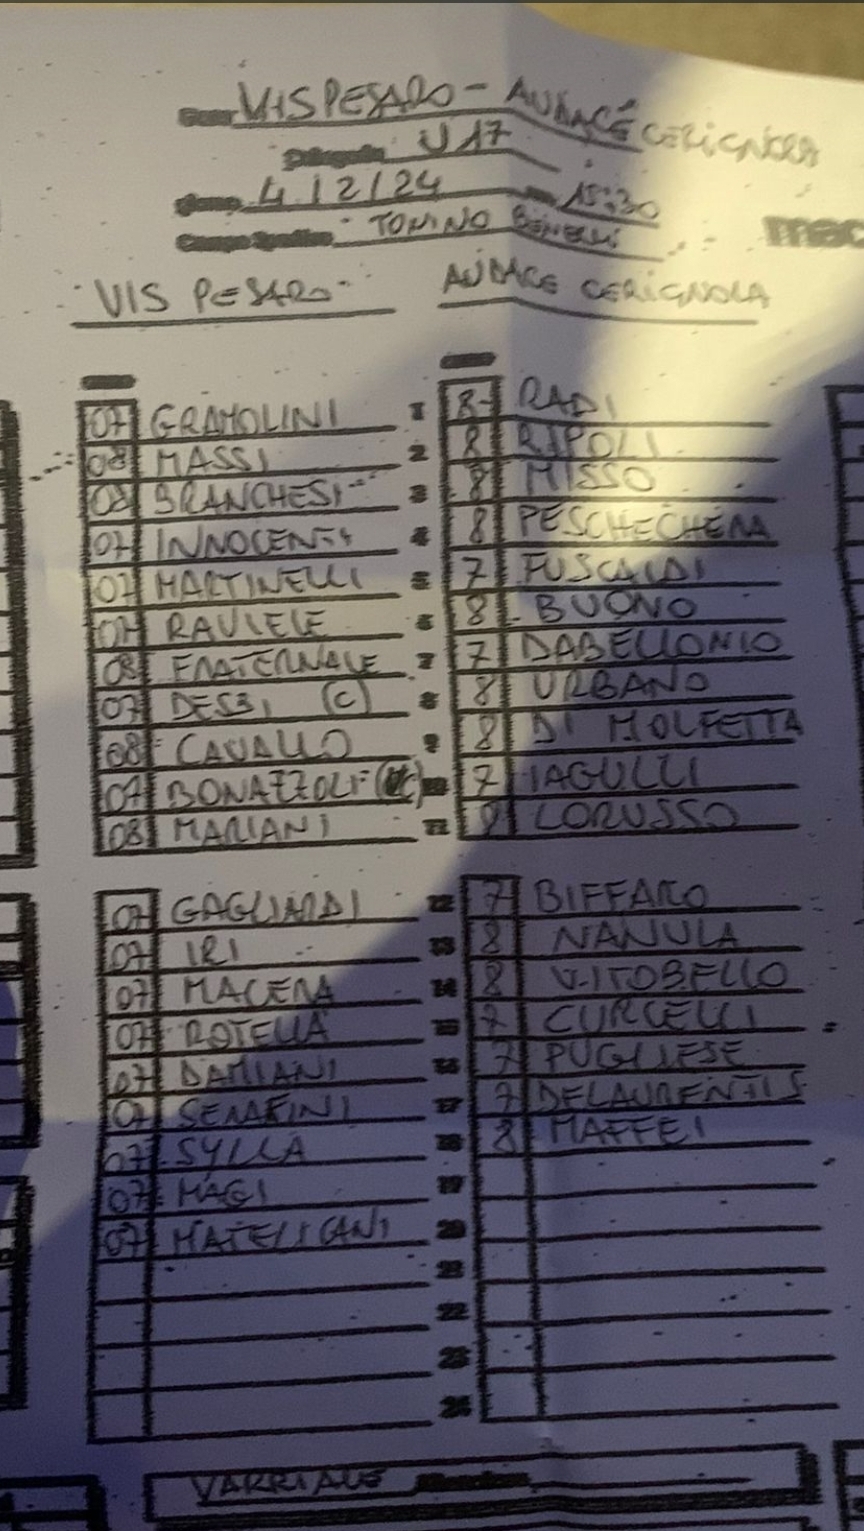 VIS PESARO - AUDACE CERIGNOLA
U17
4/2/24 15:30
Campo Sportivo TONINO BENELLI
mac
VIS PESARO AUDACE CERIGNOLA
07 GRAMOLINI 1 8 RADI
08 MASSI 2 8 RIPOLI
08 BRANCHESI 3 8 MISSO
07 INNOCENTI 4 8 PESCHECHERA
07 MARTINELLI 5 7 FUSCALDI
07 RAULELE 6 8 BUONO
08 FRATERNALE 7 7 DABELLONIO
07 DESBI (C) 8 8 URBANO
08 CAVALLO 9 8 DI MOLFETTA
07 BONAZZOLI 10 7 IAGULLI
08 MARIANI 11 8 LORUSSO
07 GAGLIARDI 12 7 BIFFARO
07 IRI 13 8 NANULA
07 MACERA 14 8 VITOBELLO
07 ROTELLA 15 7 CURCELLI
07 DAMIANI 16 7 PUGLIESE
07 SERAFINI 17 7 DELAURENTIIS
07 SYLLA 18 8 MAFFEI
07 MAGI 19
07 MATELICANI 20
21
22
23
24
VARRIALE